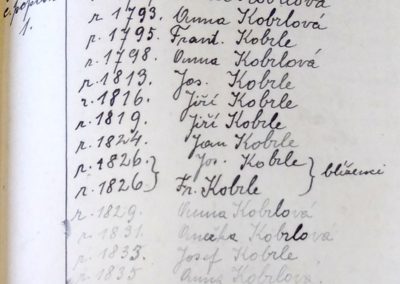 č. popis. r. 1793. Anna Kobrlová
1. r. 1795. Frant. Kobrle
r. 1798. Anna Kobrlová
r. 1813. Jos. Kobrle
r. 1816. Jiří Kobrle
r. 1819. Jiří Kobrle
r. 1824. Jan Kobrle
r. 1826. Jos. Kobrle
r. 1826. Fr. Kobrle } blíženci
r. 1829. Anna Kobrlová
r. 1831. Anežka Kobrlová
r. 1833. Josef Kobrle
r. 1835. Anna Kobrlová